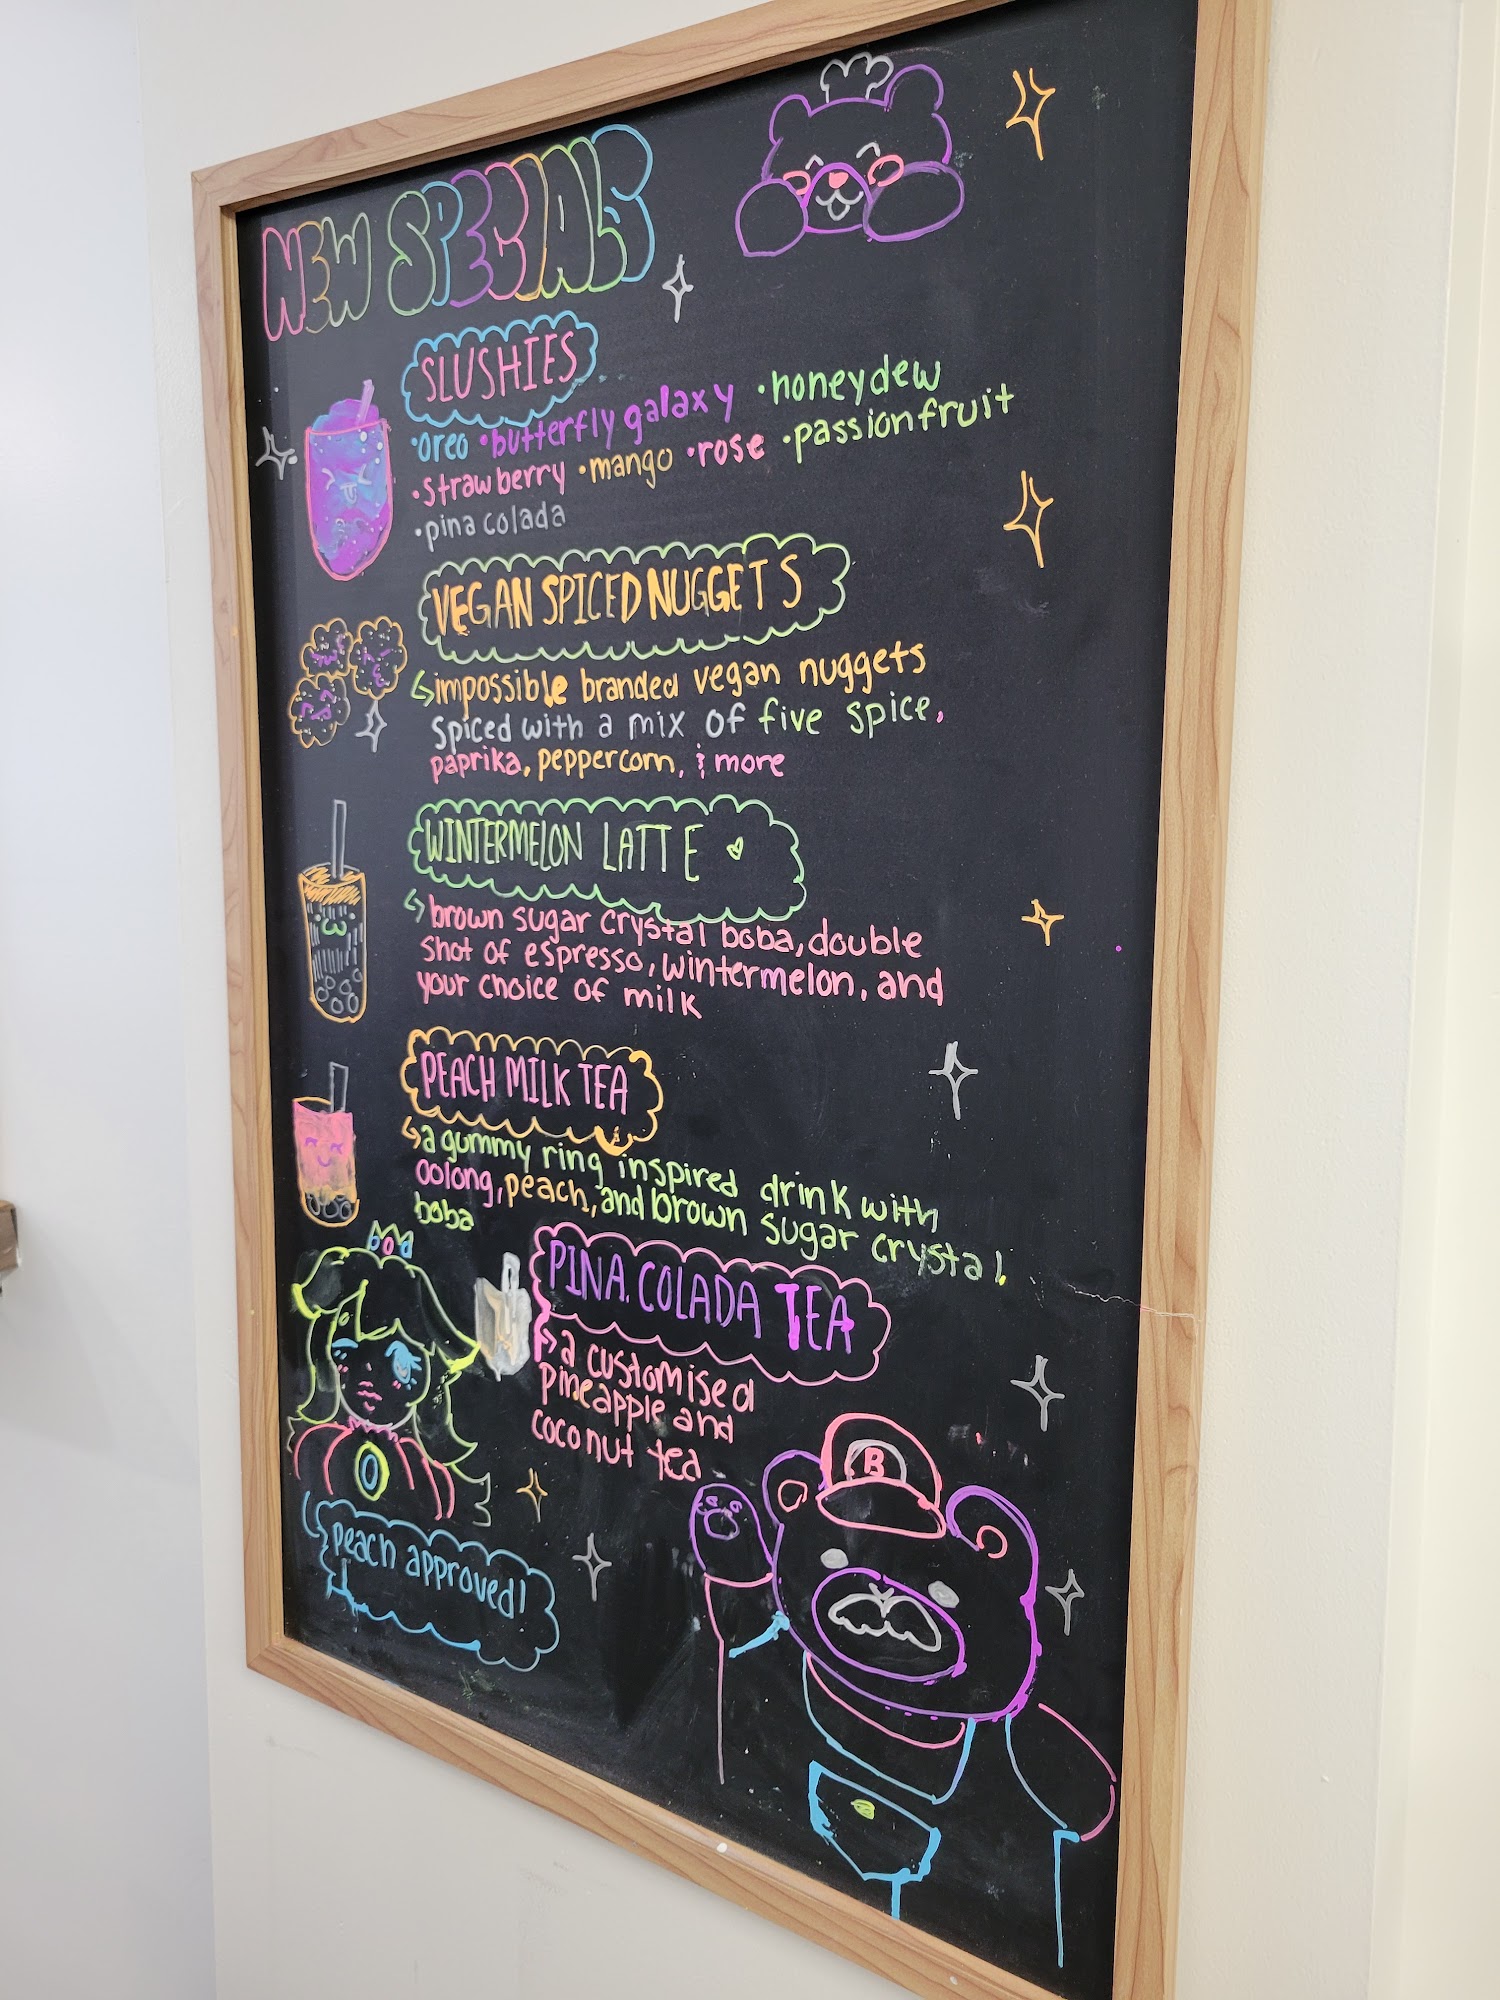 NEW SPECIALS
SLUSHIES
•oreo •butterfly galaxy •honeydew
•strawberry •mango •rose •passionfruit
•pina colada
VEGAN SPICED NUGGETS
↳impossible branded vegan nuggets
spiced with a mix of five spice,
paprika, peppercorn, & more
WINTERMELON LATTE
↳brown sugar crystal boba, double
shot of espresso, wintermelon, and
your choice of milk
PEACH MILK TEA
↳a gummy ring inspired drink with
oolong, peach, and brown sugar crystal
boba
PINA COLADA TEA
↳a customised
pineapple and
coconut tea
↳peach approved!
B